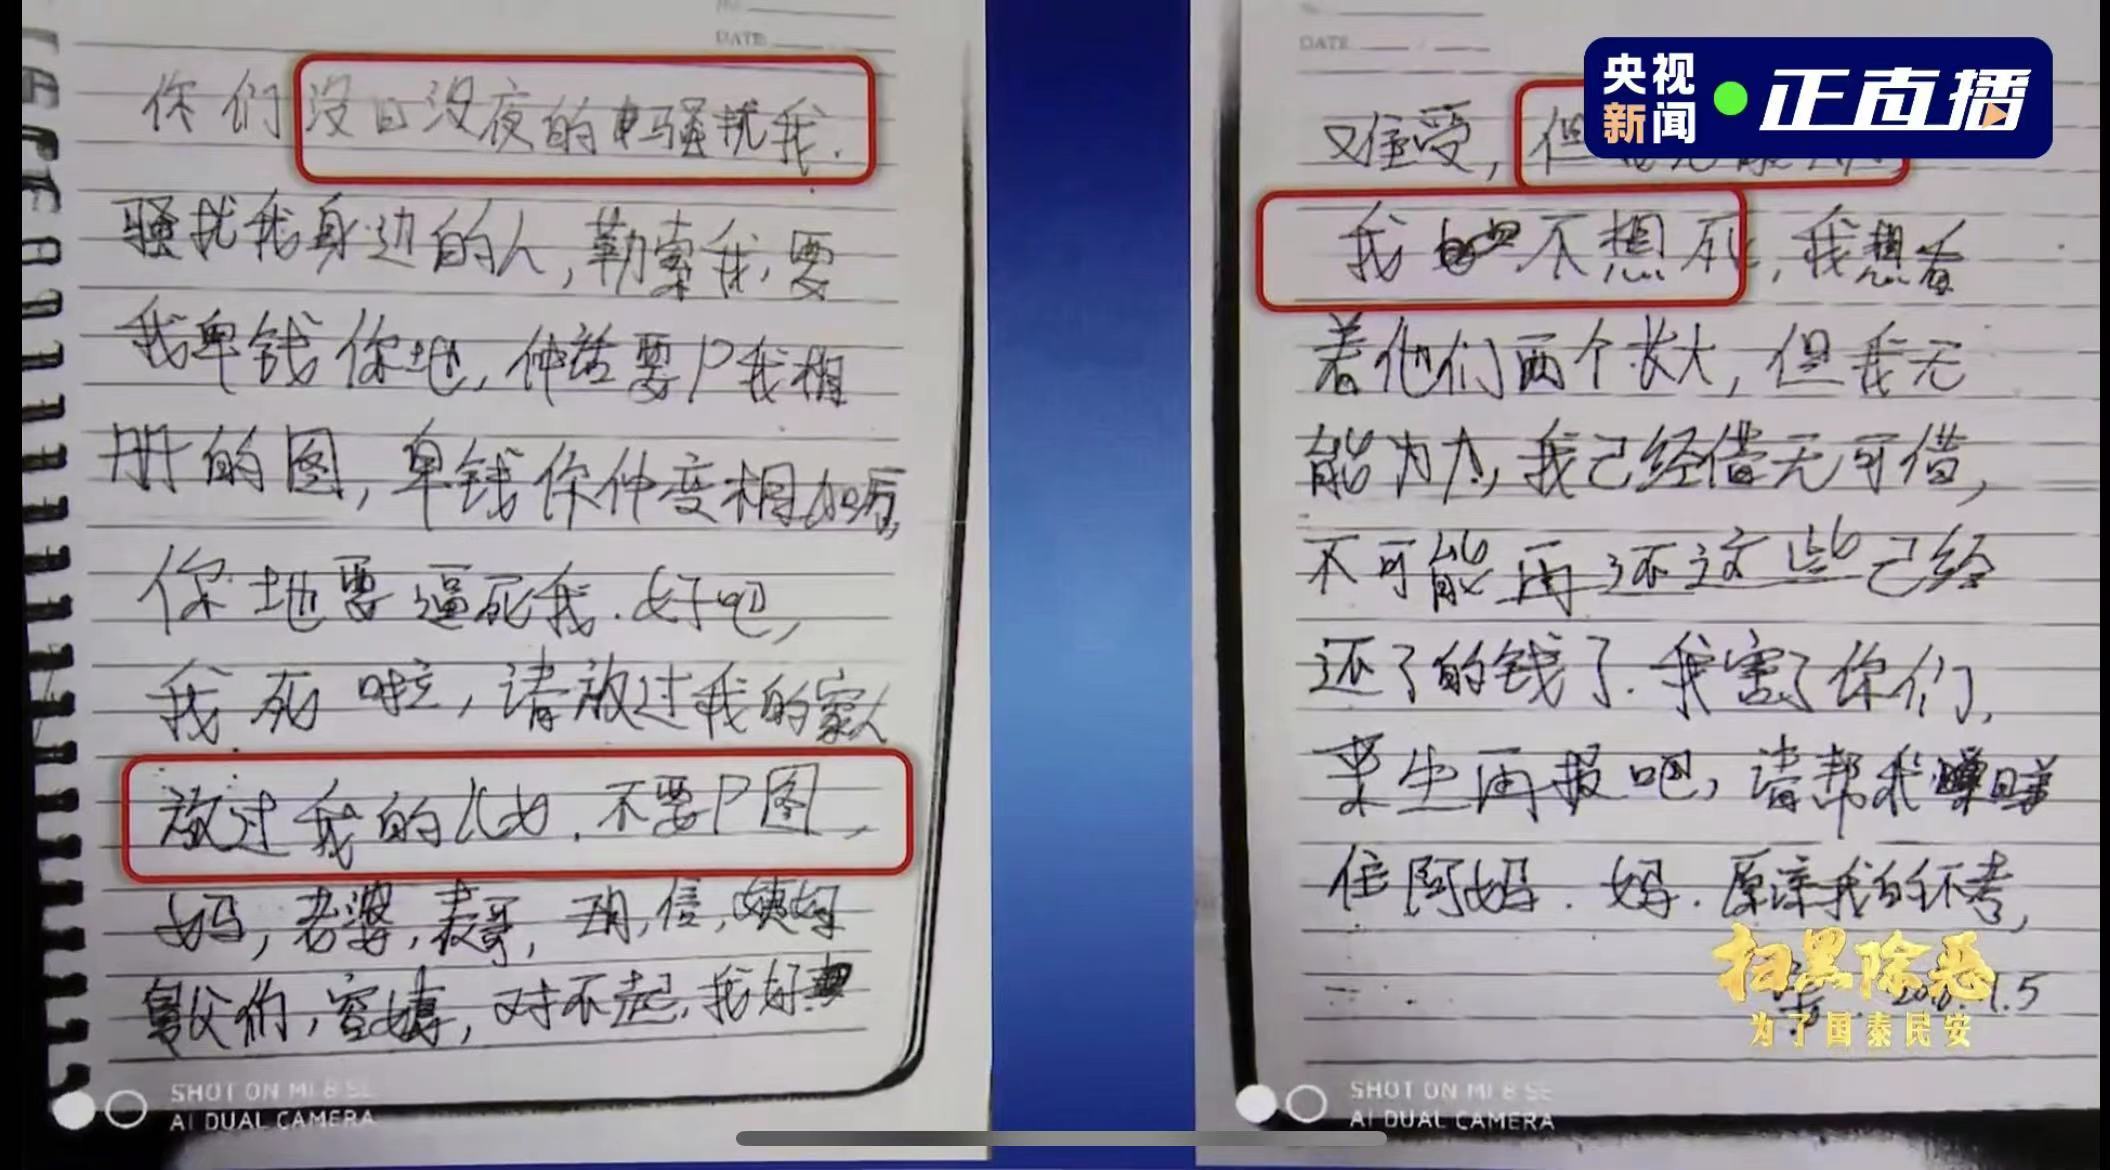 DATE
你们没日没夜的骚扰我.
骚扰我身边的人,勒索我,要
我畀钱你地,仲话要P我相
册的图,畀钱你仲变相加厉,
你地要逼死我.好吧,
我死啦,请放过我的家人
放过我的仔女.不要P图,
妈,老婆,表哥,玥,信,姨妈
舅父们,容姨,对不起,我好
SHOT ON MI 8 SE
AI DUAL CAMERA
DATE
央视新闻 正直播
难受,但
我不想死,我想看
着他们两个长大,但我无
能为力,我已经借无可借,
不可能再还这些已经
还了的钱了.我害了你们,
来生再报吧,请帮我睇
住阿妈.妈.原谅我的不孝,
1.5
扫黑除恶
为了国泰民安
SHOT ON MI 8 SE
AI DUAL CAMERA